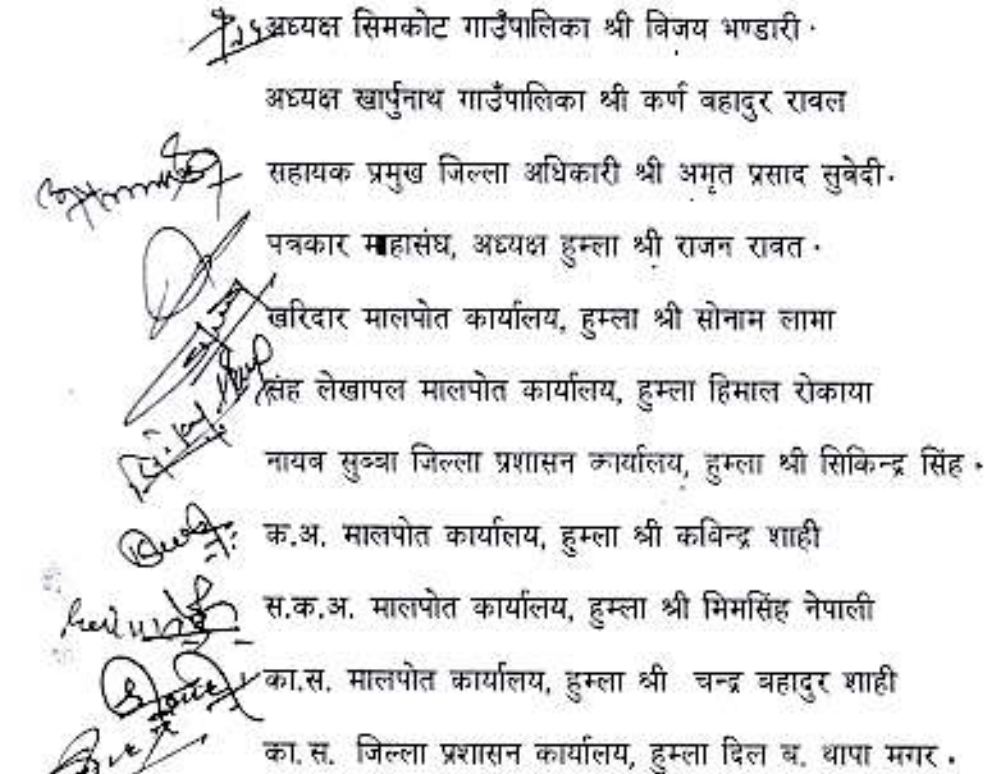 अध्यक्ष सिमकोट गाउँपालिका श्री विजय भण्डारी
अध्यक्ष खार्पुनाथ गाउँपालिका श्री कर्ण वहादुर रावल
सहायक प्रमुख जिल्ला अधिकारी श्री अमृत प्रसाद सुवेदी.
पत्रकार माहासंघ, अध्यक्ष हुम्ला श्री राजन रावत .
खरिदार मालपोत कार्यालय, हुम्ला श्री सोनाम लामा
संह लेखापल मालपोत कार्यालय, हुम्ला हिमाल रोकाया
नायव सुब्बा जिल्ला प्रशासन कार्यालय, हुम्ला श्री सिकिन्द्र सिंह .
क.अ. मालपोत कार्यालय, हुम्ला श्री कविन्द्र शाही
स.क.अ. मालपोत कार्यालय, हुम्ला श्री मिमसिंह नेपाली
का.स. मालपोत कार्यालय, हुम्ला श्री चन्द्र बहादुर शाही
का.स. जिल्ला प्रशासन कार्यालय, हुम्ला दिल ब. थापा मगर .